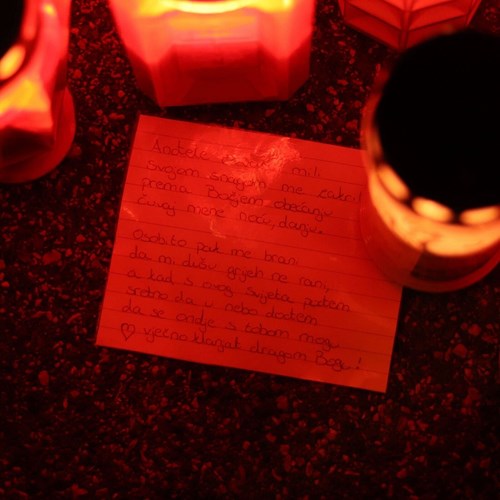 Anđele čuvaru mili
svojom snagom me zakrili
prema Božjem obećanju
čuvaj mene noću, danju.
Osobito pak me brani
da mi dušu grijeh ne rani,
a kad s ovog svijeta pođem
sretno da u nebo dođem
da se ondje s tobom mogu
♡ vječno klanjat dragom Bogu!